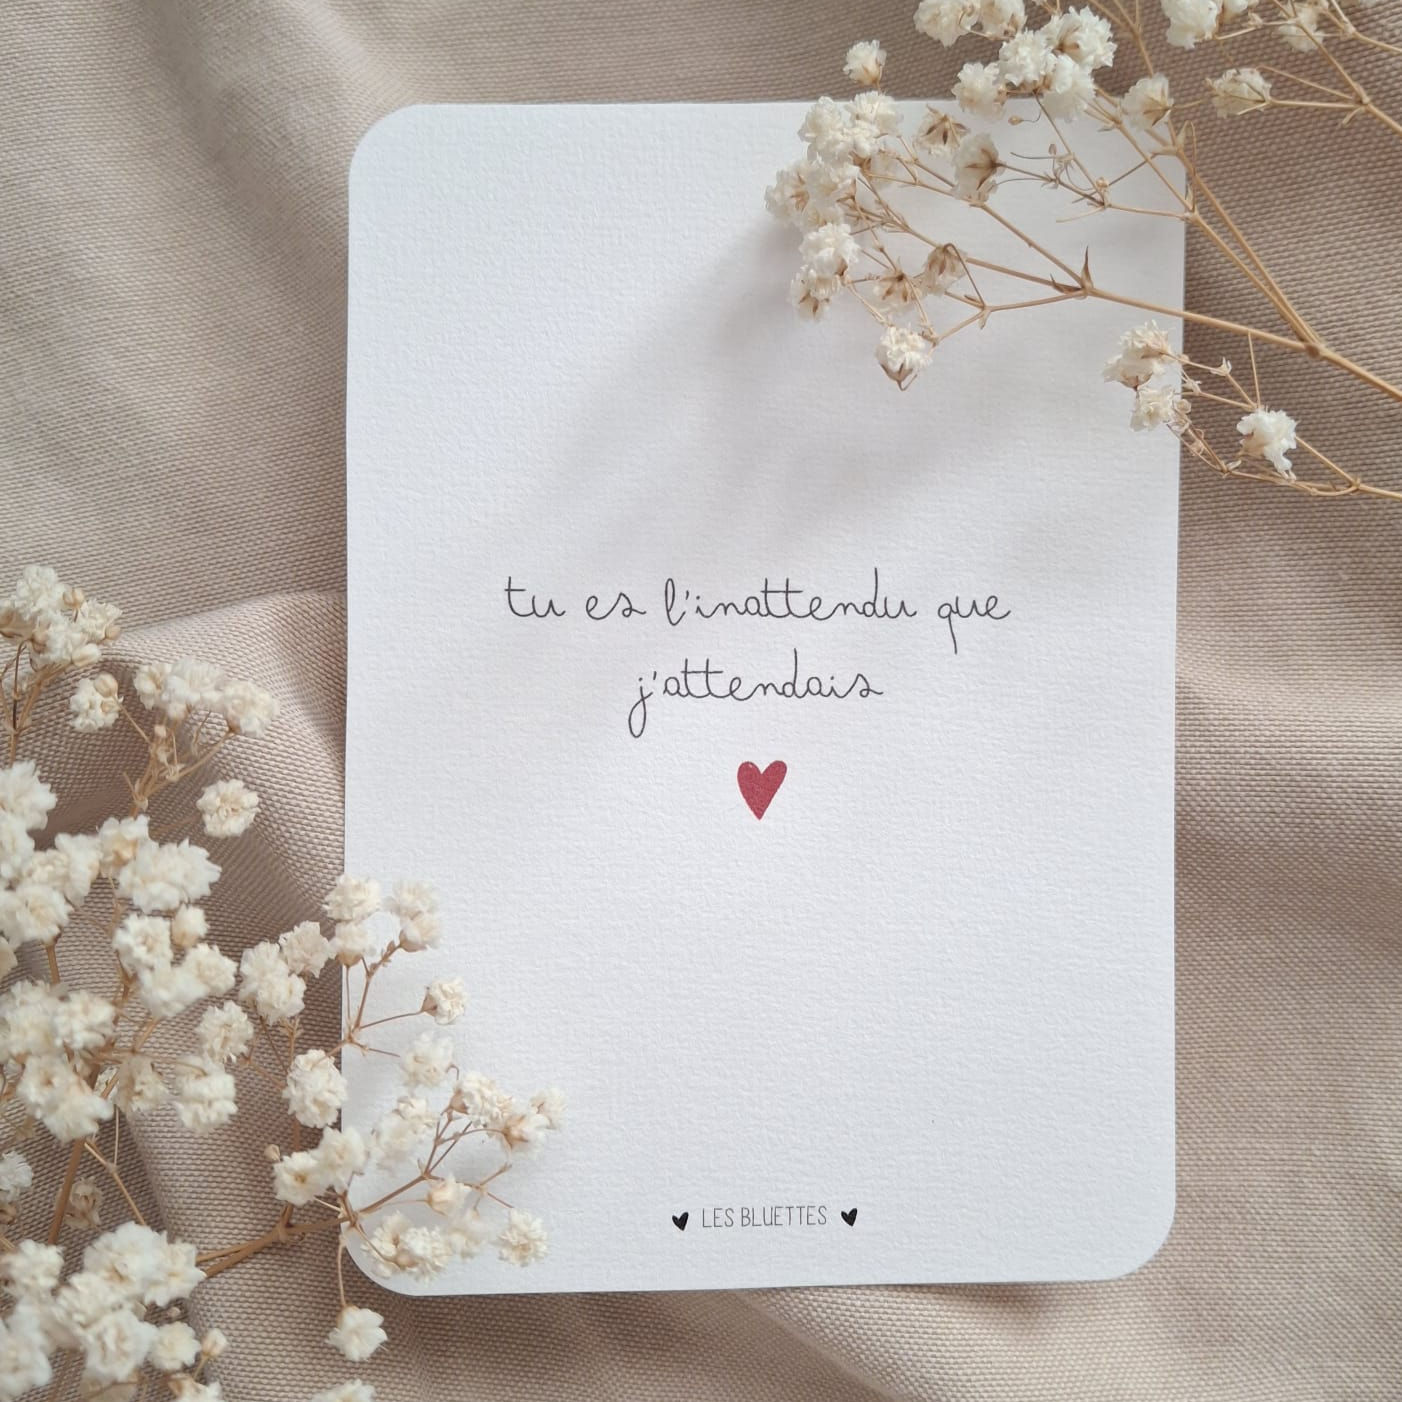 tu es l'inattendu que
j'attendais
LES BLUETTES